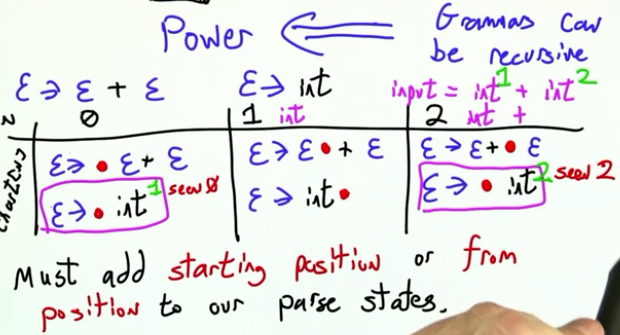 Power ⇐ Grammars can
be recursive
Ɛ → Ɛ + Ɛ
Ɛ → int
input = int¹ + int²
0
1 int
2 int +
chart[N]
Ɛ → • Ɛ + Ɛ
Ɛ → • int¹ seen 0
Ɛ → Ɛ • + Ɛ
Ɛ → int •
Ɛ → Ɛ + • Ɛ
Ɛ → • int² seen 2
Must add starting position or from
position to our parse states.